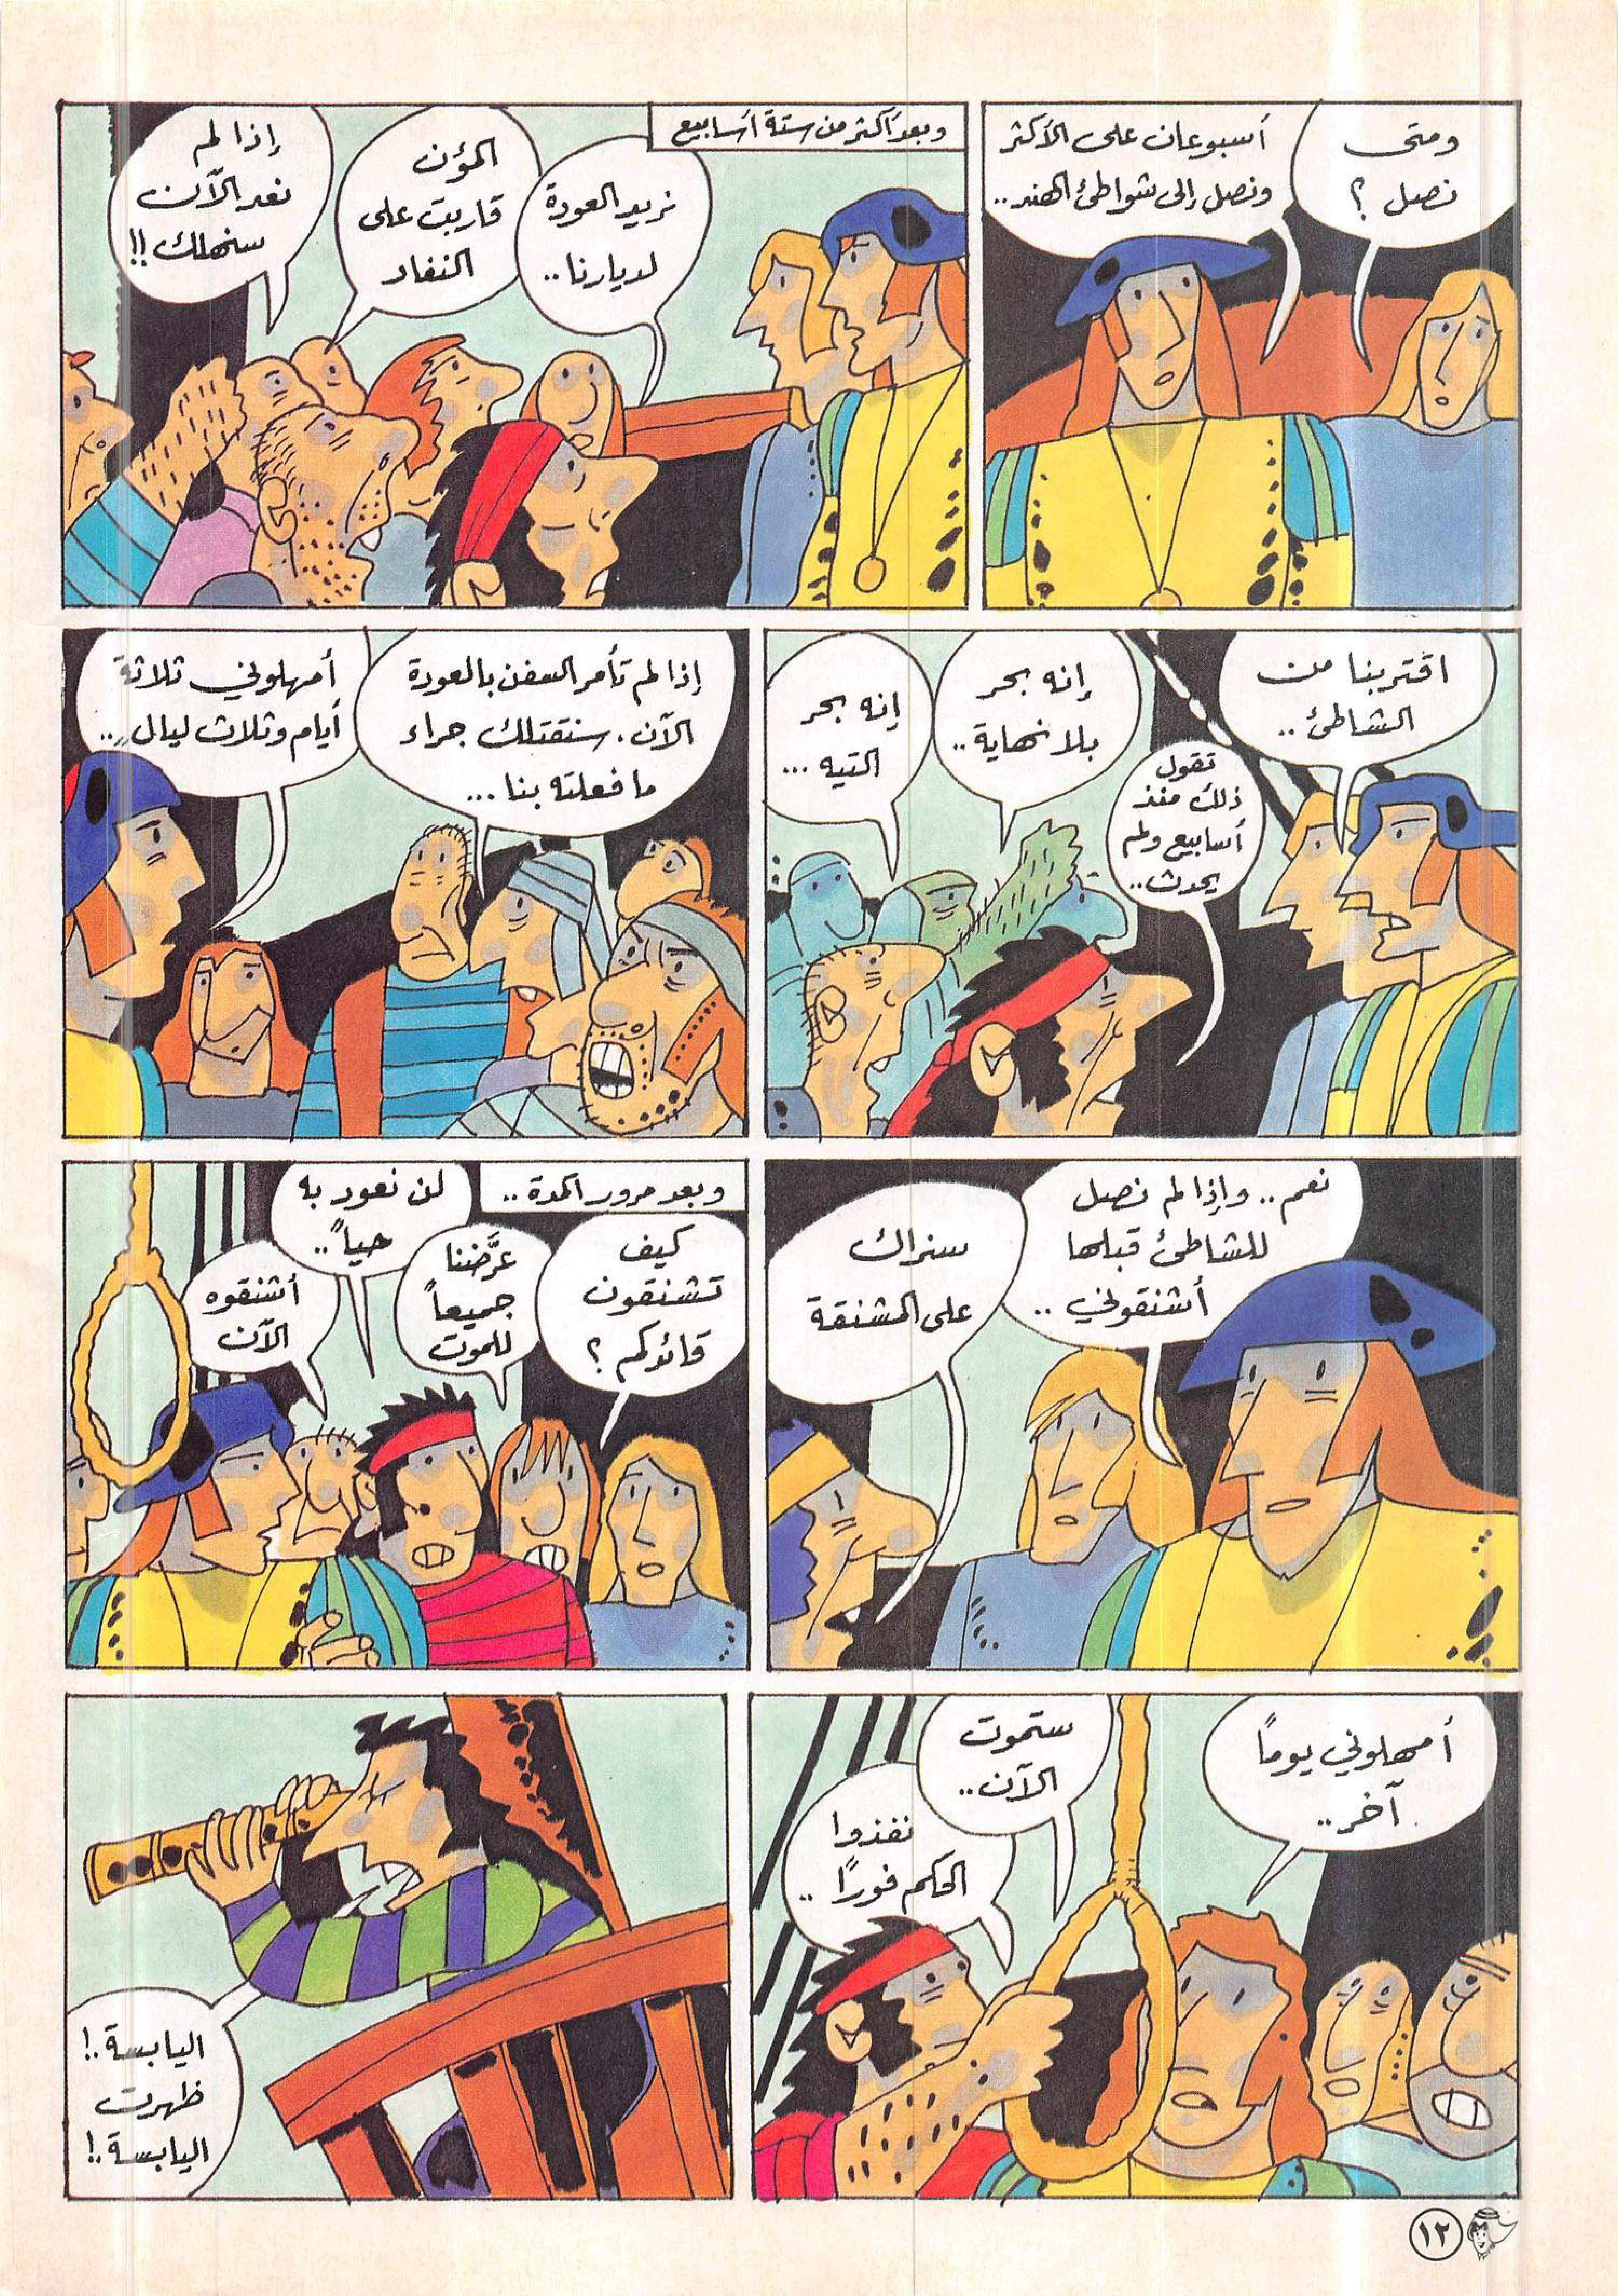 ومتى
نصل ؟
أسبوعان على الأكثر
ونصل إلى شواطئ الهند..
وبعد أكثر من ستة أسابيع
نريد العودة
لديارنا..
المؤن
قاربت على
النفاد
إذا لم
نعد الآن
سنهلك !!
اقتربنا من
الشاطئ ..
تقول
ذلك منذ
أسابيع ولم
يحدث..
إنه بحر
بلا نهاية ..
إنه بحر
التيه ...
إذا لم تأمر السفن بالعودة
الآن . سنقتلك جراء
ما فعلته بنا ...
أمهلوني ثلاثة
أيام وثلاث ليالٍ..
نعم .. وإذا لم نصل
للشاطئ قبلها
أشنقوني ..
سنراك
على المشنقة
وبعد مرور المدة ..
كيف
تشنقون
قائدكم ؟
عرَّضنا
جميعاً
للموت
لن نعود به
حياً ..
أشنقوه
الآن
أمهلوني يوماً
آخر ..
ستموت
الآن ..
نفذوا
الحكم فورًا ..
اليابسة .!
ظهرت
اليابسة .!
١٢